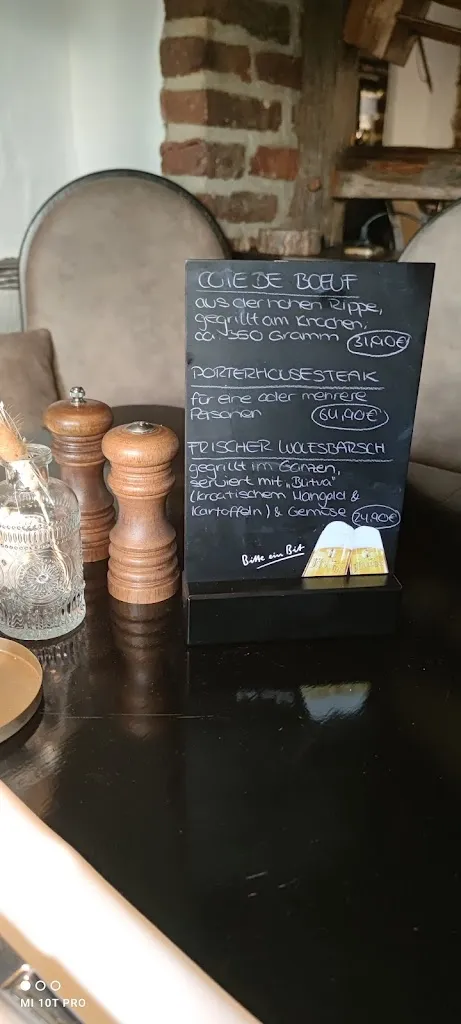 COTE DE BŒUF
aus der hohen Rippe,
gegrillt am Knochen,
ca. 350 Gramm 31,90€
PORTERHOUSESTEAK
für eine oder mehrere
Personen 64,90€
FRISCHER WOLFSBARSCH
gegrillt im Ganzen,
serviert mit „Blitva"
(kroatischem Mangold &
Kartoffeln) & Gemüse 24,90€
Bitte ein Bit
MI 10T PRO